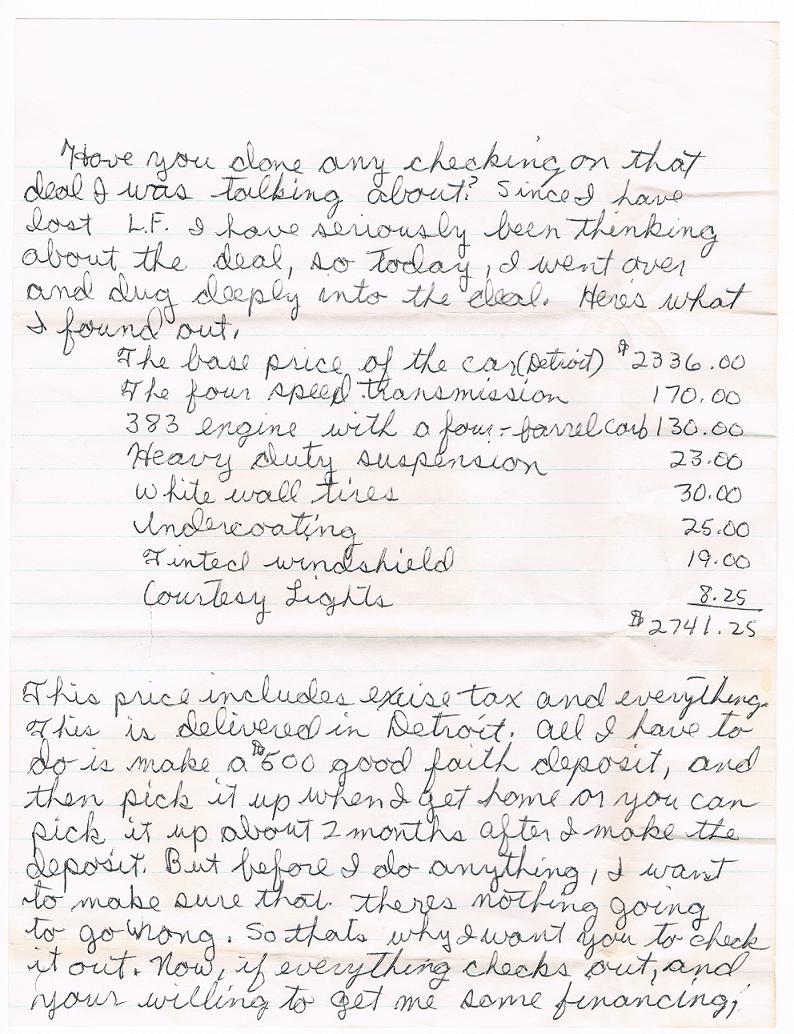 Have you done any checking on that
deal I was talking about? Since I have
lost L.F. I have seriously been thinking
about the deal, so today, I went over
and dug deeply into the deal. Here's what
I found out.
The base price of the car (Detroit) $2336.00
The four speed transmission 170.00
383 engine with a four-barrel carb 130.00
Heavy duty suspension 23.00
White wall tires 30.00
Undercoating 25.00
Tinted windshield 19.00
Courtesy Lights 8.25
$2741.25
This price includes excise tax and everything.
This is delivered in Detroit. All I have to
do is make a $500 good faith deposit, and
then pick it up when I get home or you can
pick it up about 2 months after I make the
deposit. But before I do anything, I want
to make sure that theres nothing going
to go wrong. So thats why I want you to check
it out. Now, if everything checks out, and
your willing to get me some financing,